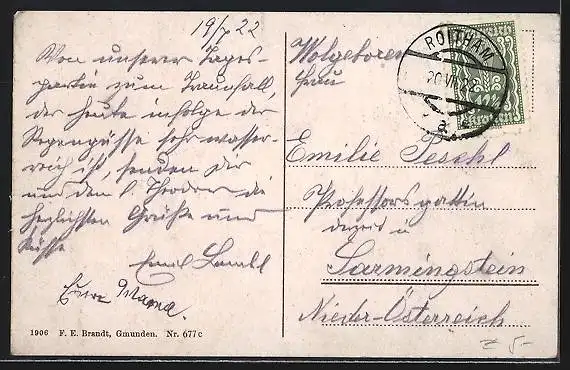 19/7 22
Von unserer Tages-
partie zum Traunfall,
der heute infolge der
Regengüsse sehr wasser-
reich ist, senden Dir
und den l. Theodor die
herzlichsten Grüße und
Küsse
Emil
Eure Mama.
1906 F. E. Brandt, Gmunden. Nr. 677c
Wolgeboren
Frau
Emilie Peschl
Professorsgattin
derzeit in
Sarmingstein
Nieder-Österreich
ROITHAM
20.VII.22
a